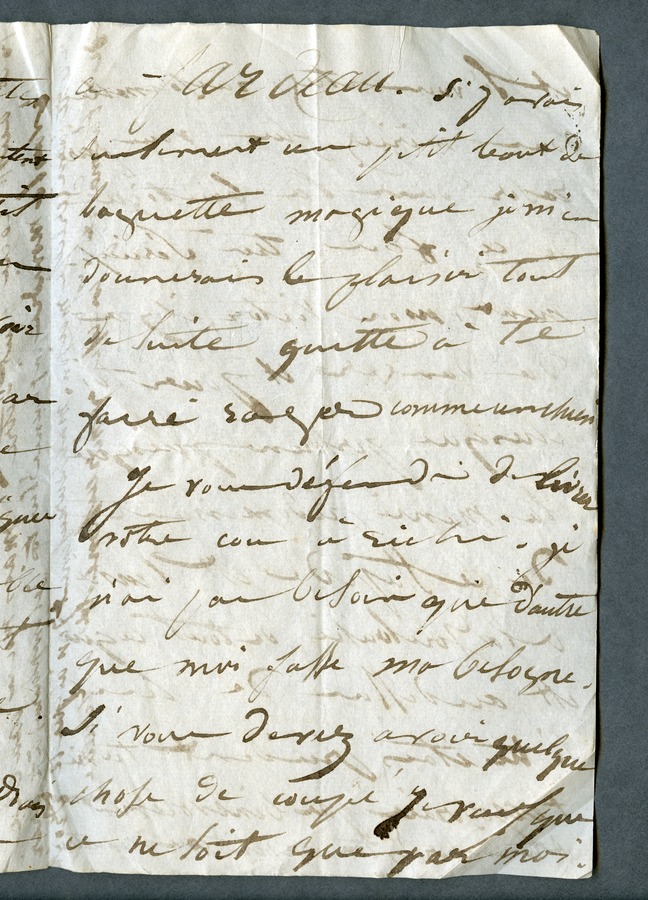 a fardeau. Si j'avais
seulement un ptit bout de
baguette magique je m'en
donnerais le plaisir tout
de suite quitte à te
faire rager comme un chien
Je vous défend de livrer
votre cou à
n'ai pas besoin que d'autre
que moi fasse ma besogne.
Si vous devez avoir quelque
chose de coupé je veux que
ce ne soit que par moi.